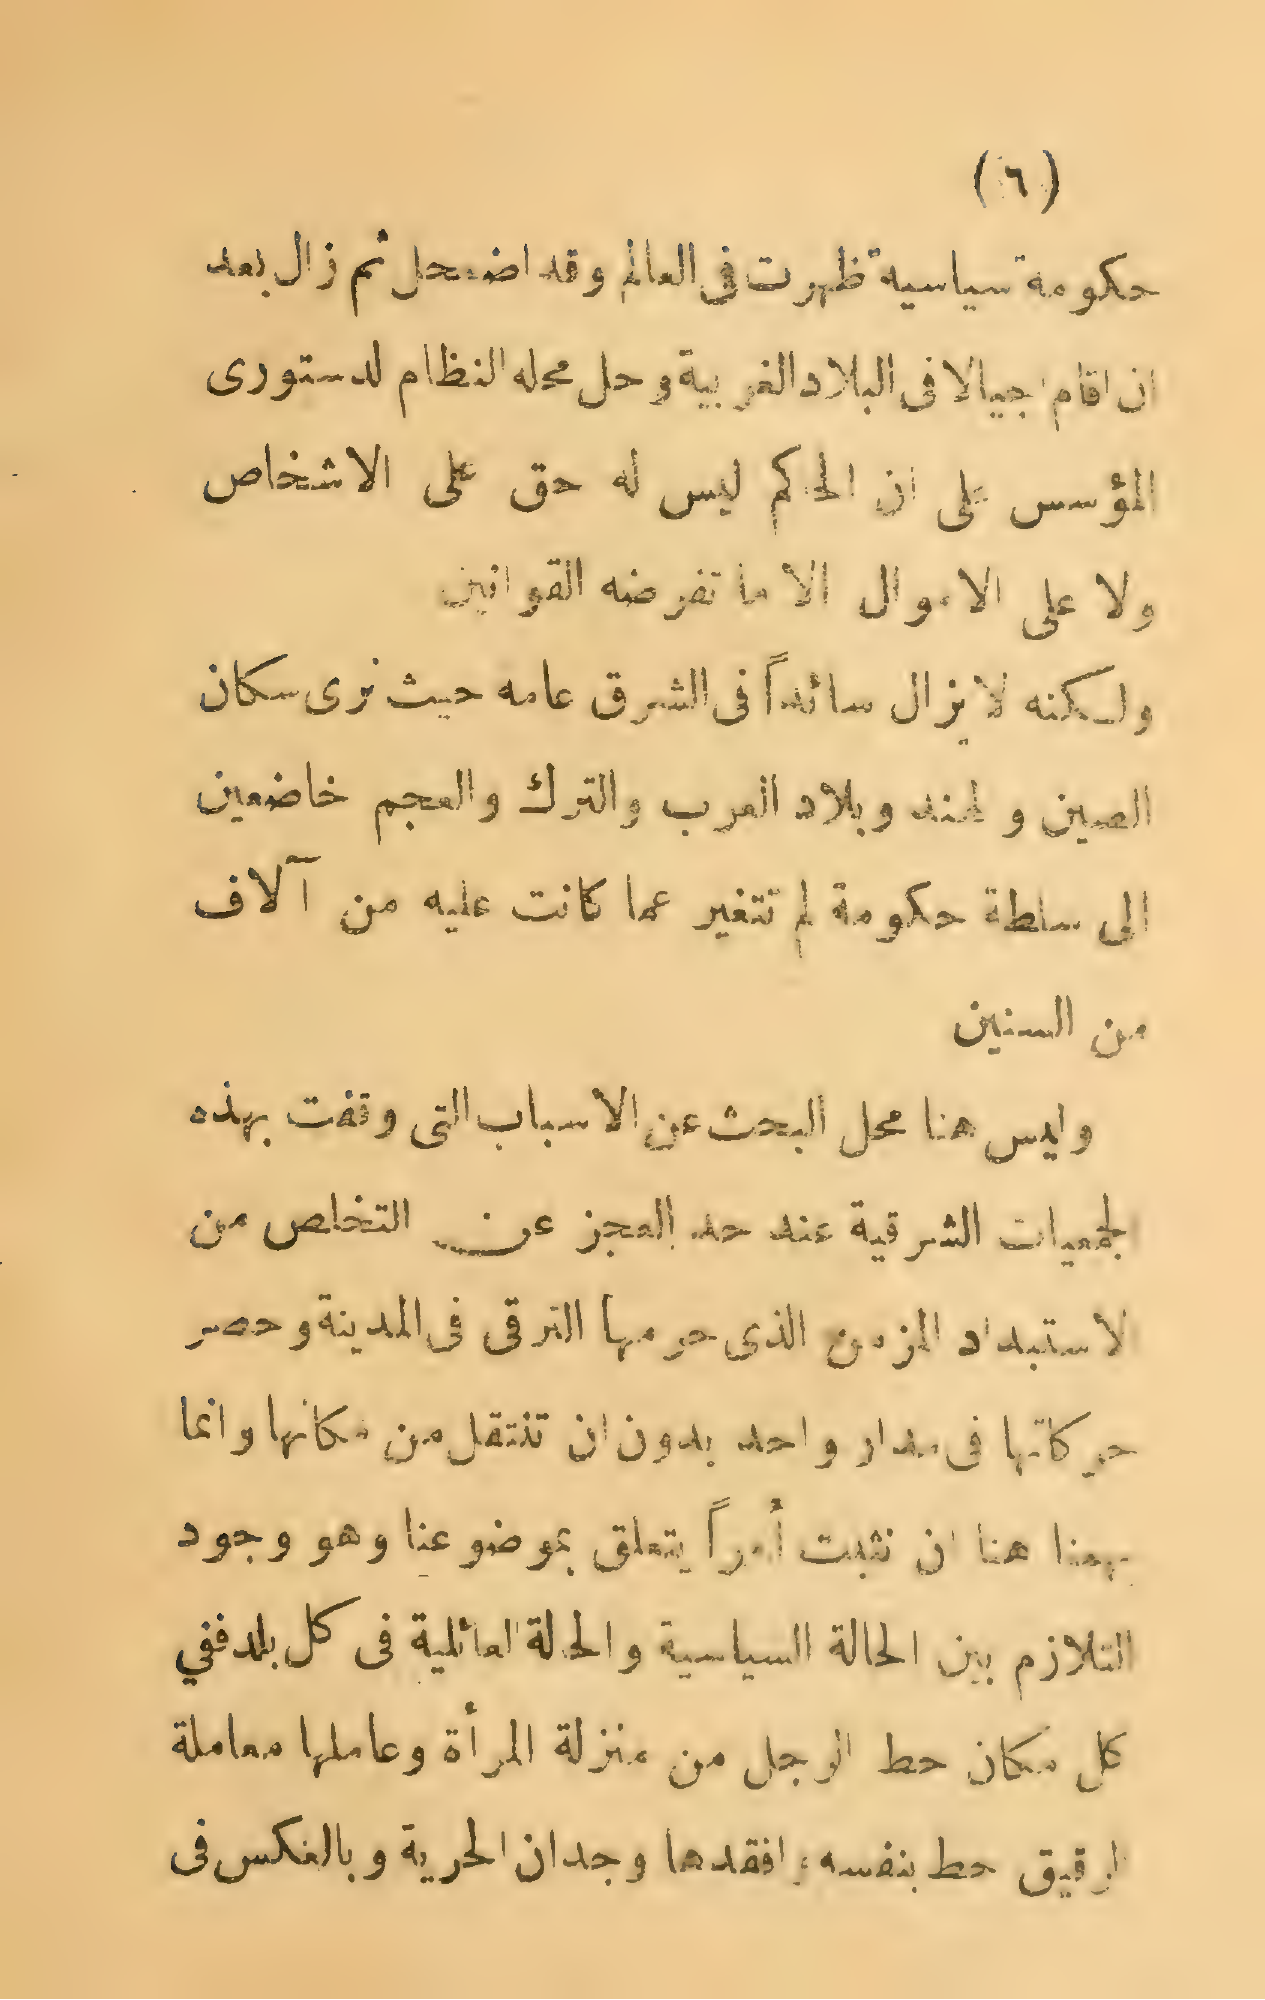 (٦)
حكومة سياسية ظهرت فى العالم وقد اضمحل ثم زال بعد
ان اقام اجيالا فى البلاد الغربية وحل محله النظام الدستورى
المؤسس على ان الحاكم ليس له حق على الاشخاص
ولا على الاموال الا ما تفرضه القوانين
ولكنه لا يزال سائداً فى الشرق عامه حيث نرى سكان
الصين والهند وبلاد العرب والترك والعجم خاضعين
الى سلطة حكومة لم تتغير عما كانت عليه من آلاف
من السنين
وليس هنا محل البحث عن الاسباب التى وقفت بهذه
الجمعيات الشرقية عند حد العجز عن التخلص من
الاستبداد المزمن الذى حرمها الترقى فى المدينة وحصر
حركاتها فى مدار واحد بدون ان تنتقل من مكانها وانما
يهمنا هنا ان نثبت أمراً يتعلق بموضوعنا وهو وجود
التلازم بين الحالة السياسية والحالة العائلية فى كل بلد ففي
كل مكان حط الرجل من منزلة المرأة وعاملها معاملة
الرقيق حط بنفسه وافقدها وجدان الحرية وبالعكس فى